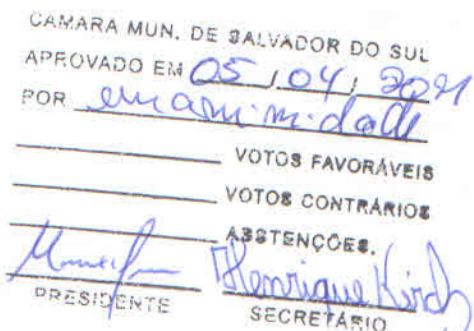 CAMARA MUN. DE SALVADOR DO SUL
APROVADO EM 05 / 04 / 2021
POR unanimidade
VOTOS FAVORÁVEIS
VOTOS CONTRÁRIOS
ABSTENÇÕES.
Henrique Kirch
PRESIDENTE SECRETÁRIO